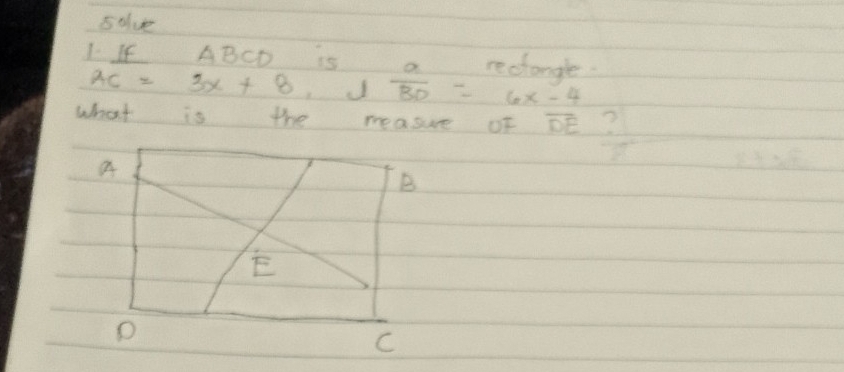 solve
1. If ABCD is a rectangle.
AC = 3x + 8, BD = 6x - 4
what is the measure OF DE ?
A
B
E
D
C